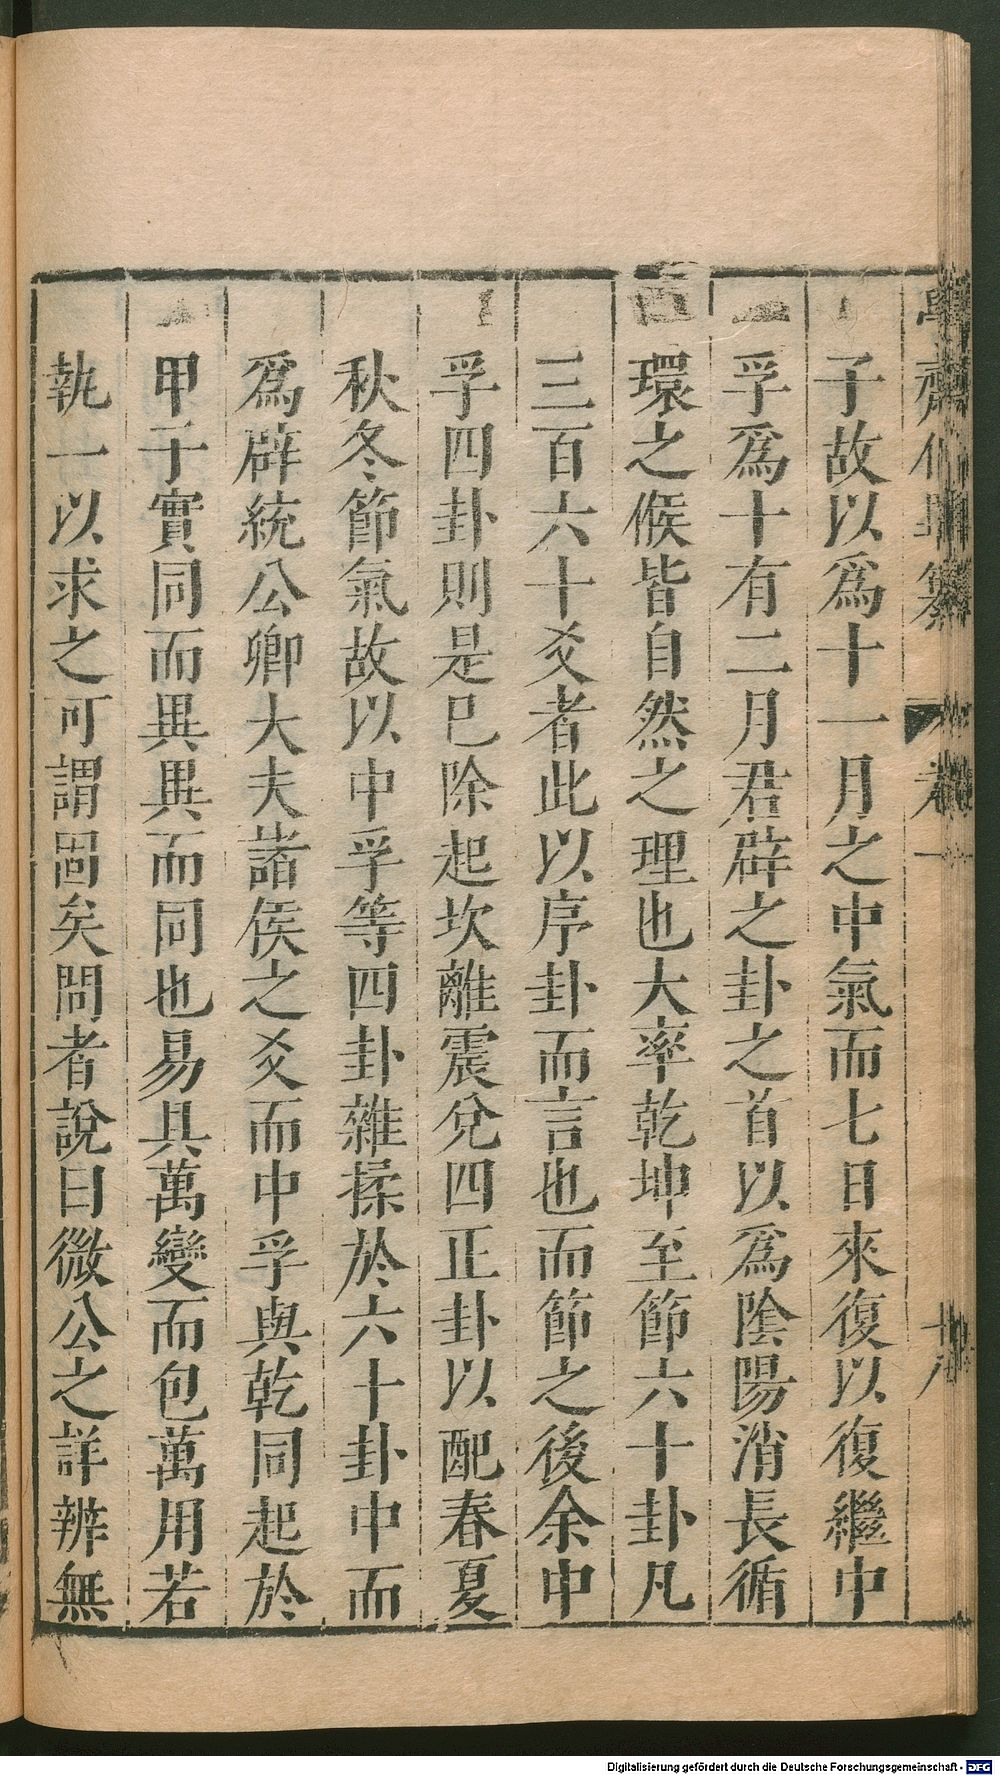 子故以爲十一月之中氣而七日來復以復繼中
孚爲十有二月君辟之卦之首以爲陰陽消長循
環之候皆自然之理也大率乾坤至節六十卦凡
三百六十爻者此以序卦而言也而節之後余中
孚四卦則是巳除起坎離震兌四正卦以配春夏
秋冬節氣故以中孚等四卦雜揉於六十卦中而
爲辟統公卿大夫諸侯之爻而中孚與乾同起於
甲子實同而異異而同也易具萬變而包萬用若
執一以求之可謂固矣問者說曰微公之詳辨無
卷一
十八
Digitalisierung gefördert durch die Deutsche Forschungsgemeinschaft - DFG